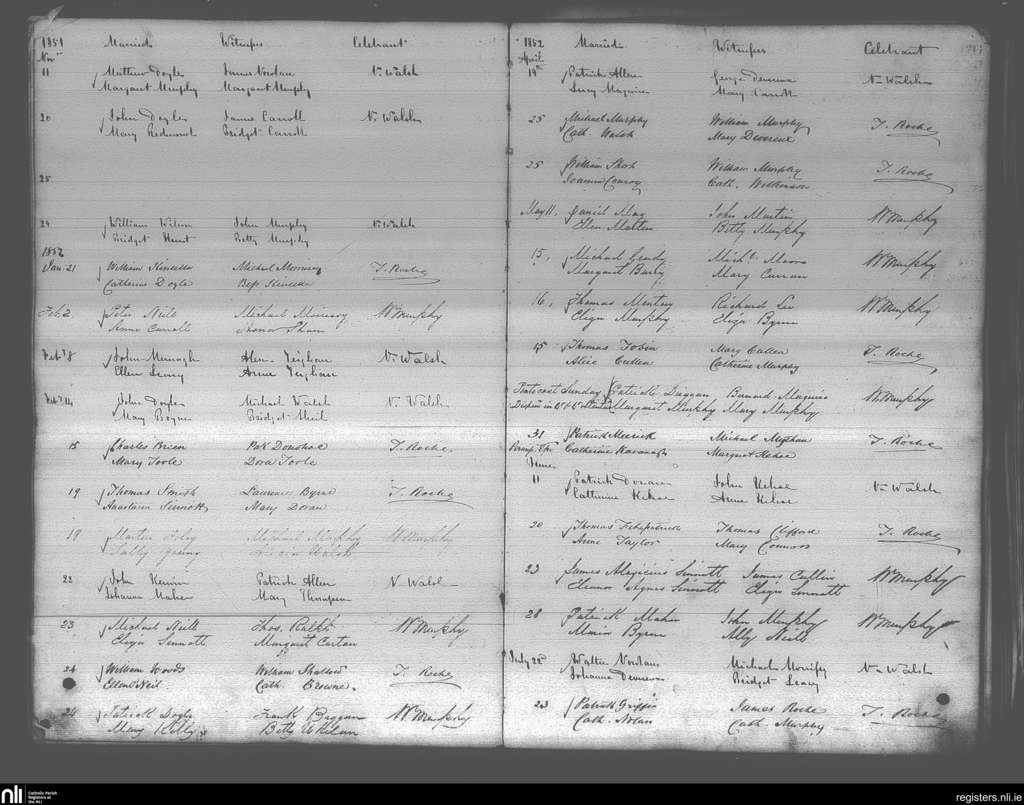 1851 Married Witness Celebrant
Novr
11 Matthew Doyle James Nowlan N. Walsh
Margaret Murphy Margaret Murphy
20 John Doyle James Carroll N. Walsh
Mary Redmond Bridget Carroll
25
24 William Wilson John Murphy N. Walsh
Bridget Betty Murphy
1852
Jan. 21 William Kinsella Michael Morrissy T. Roche
Catherine Doyle Bess Kinsella
Feb. 2 Peter Neill Michael Morrissy W Murphy
Anne Carroll
Feby 8 John N. Walsh
Ellen Leary Anne
Feby 14 John Doyle Michael Walsh N. Walsh
Mary Bridget Neil
15 Charles Brien Pat Donohoe T. Roche
Mary Toole Dora Toole
19 Thomas Smith Laurence Byrne T. Roche
Anastasia Sinnott Mary Doran
19 Martin Foley Michael Murphy W Murphy
Sally Walsh
22 John Patrick Allen N Walsh
Johanna Maher Mary Thompson
23 Michael Neill Thos. W Murphy
Eliza Sinnott Margaret
24 William Woods William T. Roche
Ellen Neil Cath. Browne
24 Patrick Doyle Frank W Murphy
Mary Kelly Betty Whelan
1852 Married Witness Celebrant
April
19th Patrick Allen George Devereux N. Walsh
Lucy Maguire Mary Carroll
25 Michael Murphy William Murphy T. Roche
Cath. Walsh Mary Devereux
25 William William Murphy T. Roche
Joanna Conroy Cath. Wilkinson
May 11. Daniel John Martin W Murphy
Ellen Betty Murphy
15, Michael Grady Michl. W Murphy
Margaret Mary Curran
16, Thomas Richard Lee W Murphy
Eliza Murphy Eliza Byrne
15 Thomas Tobin Mary Cullen T. Roche
Alice Cullen Catherine Murphy
Pentecost Sunday Patrick Duggan Bernard Maguire W Murphy
Margaret Murphy Mary Murphy
31 Patrick Michael T. Roche
Catherine Kavanagh Margaret Kehoe
June
11 Patrick John Kehoe N. Walsh
Catherine Kehoe Anne Kehoe
20 Thomas Fitzpatrick Thomas Clifford T. Roche
Anne Taylor Mary Connors
23 James Aloysius Sinnott James Cullen W Murphy
Eleanor Agnes Sinnott Eliza Sinnott
28 Patrick Maher John Murphy W Murphy
Byrne Ally Neill
July 22d Walter Michael N. Walsh
Johanna Devereux Bridget Leary
23 Patrick Griffin James Roche T. Roche
Cath. Nolan Cath. Murphy
nli Catholic Parish
Registers at
the NLI
registers.nli.ie